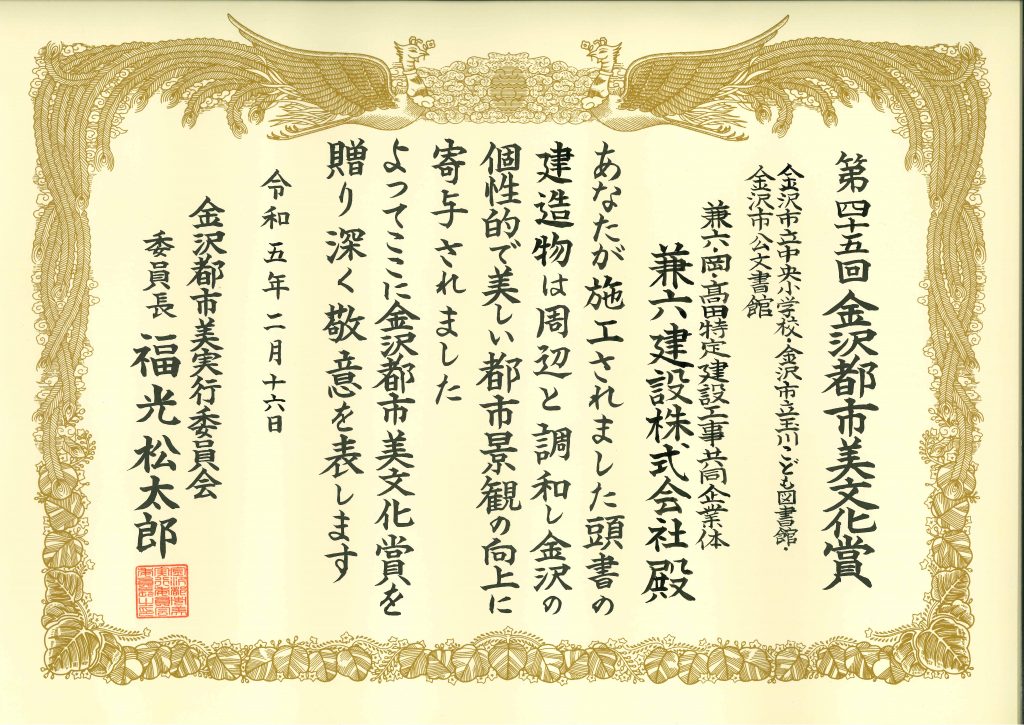 第四十五回 金沢都市美文化賞
金沢市立中央小学校・金沢市立玉川こども図書館・
金沢市公文書館
兼六・岡・髙田特定建設工事共同企業体
兼六建設株式会社 殿
あなたが施工されました頭書の
建造物は周辺と調和し金沢の
個性的で美しい都市景観の向上に
寄与されました
よってここに金沢都市美文化賞を
贈り深く敬意を表します
令和五年二月十六日
金沢都市美実行委員会
委員長 福光松太郎